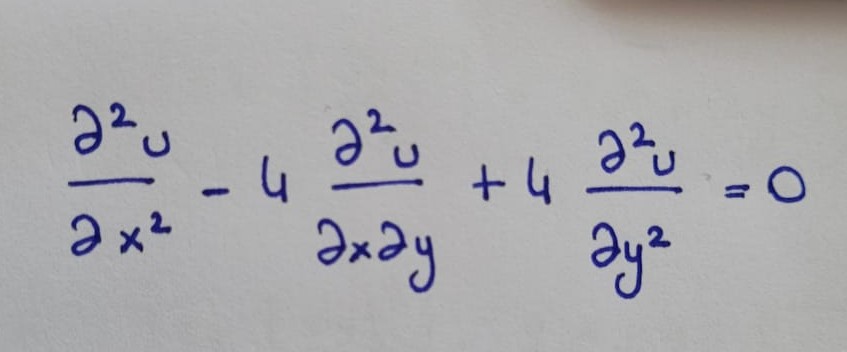 ∂²u/∂x² - 4 ∂²u/∂x∂y + 4 ∂²u/∂y² = 0